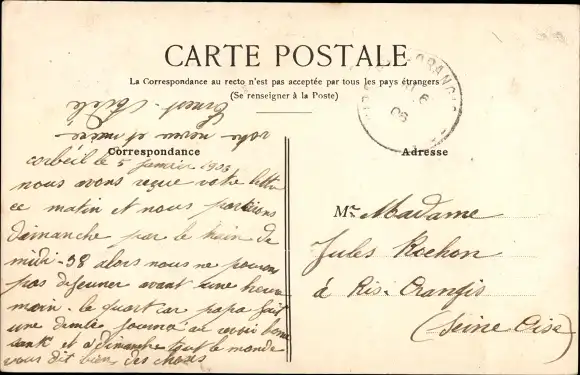 CARTE POSTALE
La Correspondance au recto n'est pas acceptée par tous les pays étrangers
(Se renseigner à la Poste)
Correspondance
corbeil le 5 Janvier 1903
nous avons reçue votre lettre
ce matin et nous partirons
dimanche par le train de
midi-38 alors nous ne pouvons
pas déjeuner avant une heure
moin-le quart car papa fait
une demie journé au revoir bonne
santé et a dimanche tout le monde
vous dit bien des choses
votre neveu et nièce
Ernest
Adresse
Mr Madame
Jules Rochon
à Ris-Orangis
(Seine Oise)